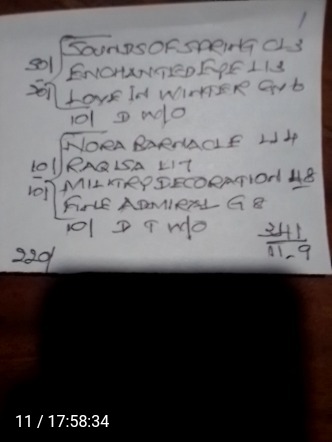 1
SOUNDS OF SPRING CL3
50/ ENCHANTED EYE L13
50/ LOVE IN WINTER Gr6
10/ D W/O
NORA BARNACLE L4
10/ RAQISA L17
10/ MILITRY DECORATION 48
FINE ADMIRAL G8
10/ D T W/O
341
220/ 11-9
11 / 17:58:34